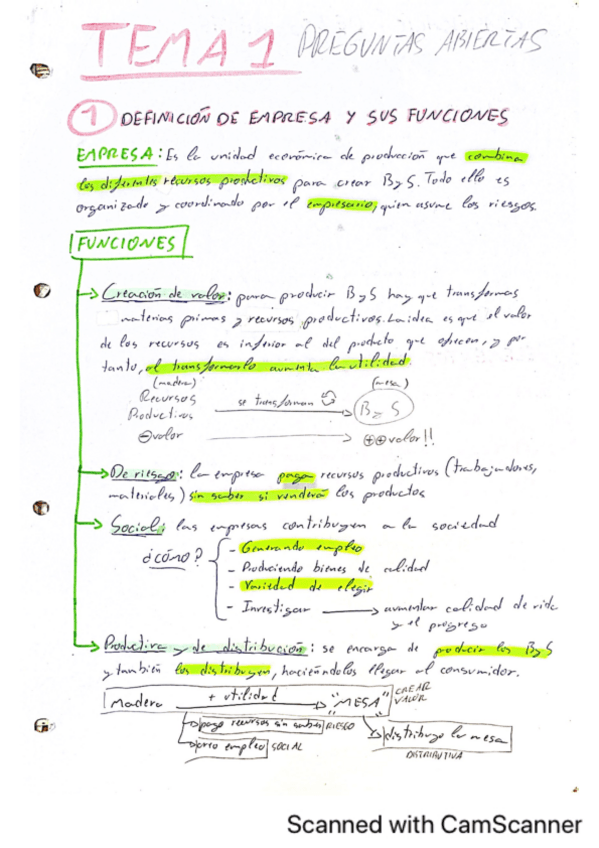 TEMA 1 PREGUNTAS ABIERTAS
1 DEFINICIÓN DE EMPRESA Y SUS FUNCIONES
EMPRESA: Es la unidad económica de producción que combina
los diferentes recursos productivos para crear B y S. Todo ello es
organizado y coordinado por el empresario, quien asume los riesgos.
FUNCIONES
→ Creación de valor: para producir B y S hay que transformar
materias primas y recursos productivos. La idea es que el valor
de los recursos es inferior al del producto que ofrecen, y por
tanto, al transformarlo aumenta la utilidad.
(madera) (mesa)
Recursos Productivos se transforman → B y S
⊖valor → ⊕⊕valor!!
→ De riesgo: la empresa paga recursos productivos (trabajadores,
materiales) sin saber si venderá los productos
→ Social: las empresas contribuyen a la sociedad
¿cómo?
- Generando empleo
- Produciendo bienes de calidad
- Variedad de elegir
- Investigar → aumentar calidad de vida
y el progreso
→ Productiva y de distribución: se encarga de producir los B y S
y también los distribuyen, haciéndolos llegar al consumidor.
Madera + utilidad → "MESA" CREAR VALOR
→ pago recursos sin saber RIESGO
→ distribuyo la mesa
→ creo empleo SOCIAL
DISTRIBUTIVA
Scanned with CamScanner